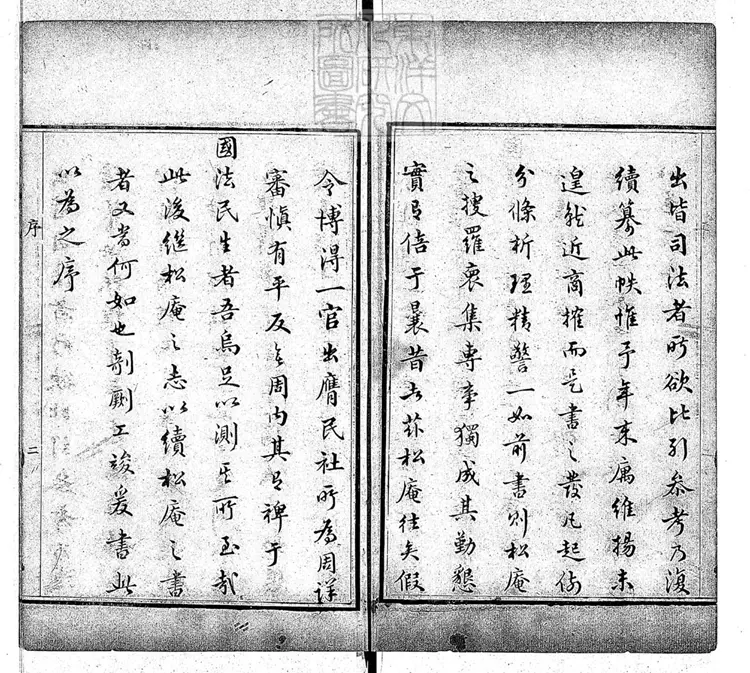 出皆司法者所欲比引參考乃復
續纂此帙惟予年來寓維揚未
遑就近商搉而是書之發凡起例
分條析理精警一如前書則松庵
之搜羅裒集專事獨成其勤懇
實有倍于曩昔者茲松庵往矣假
令博得一官出膺民社所為周詳
審慎有平反之周內其有裨于
國法民生者吾烏足以測其所至哉
此後繼松庵之志以續松庵之書
者又當何如也剞劂工竣爰書此
以為之序
序
二